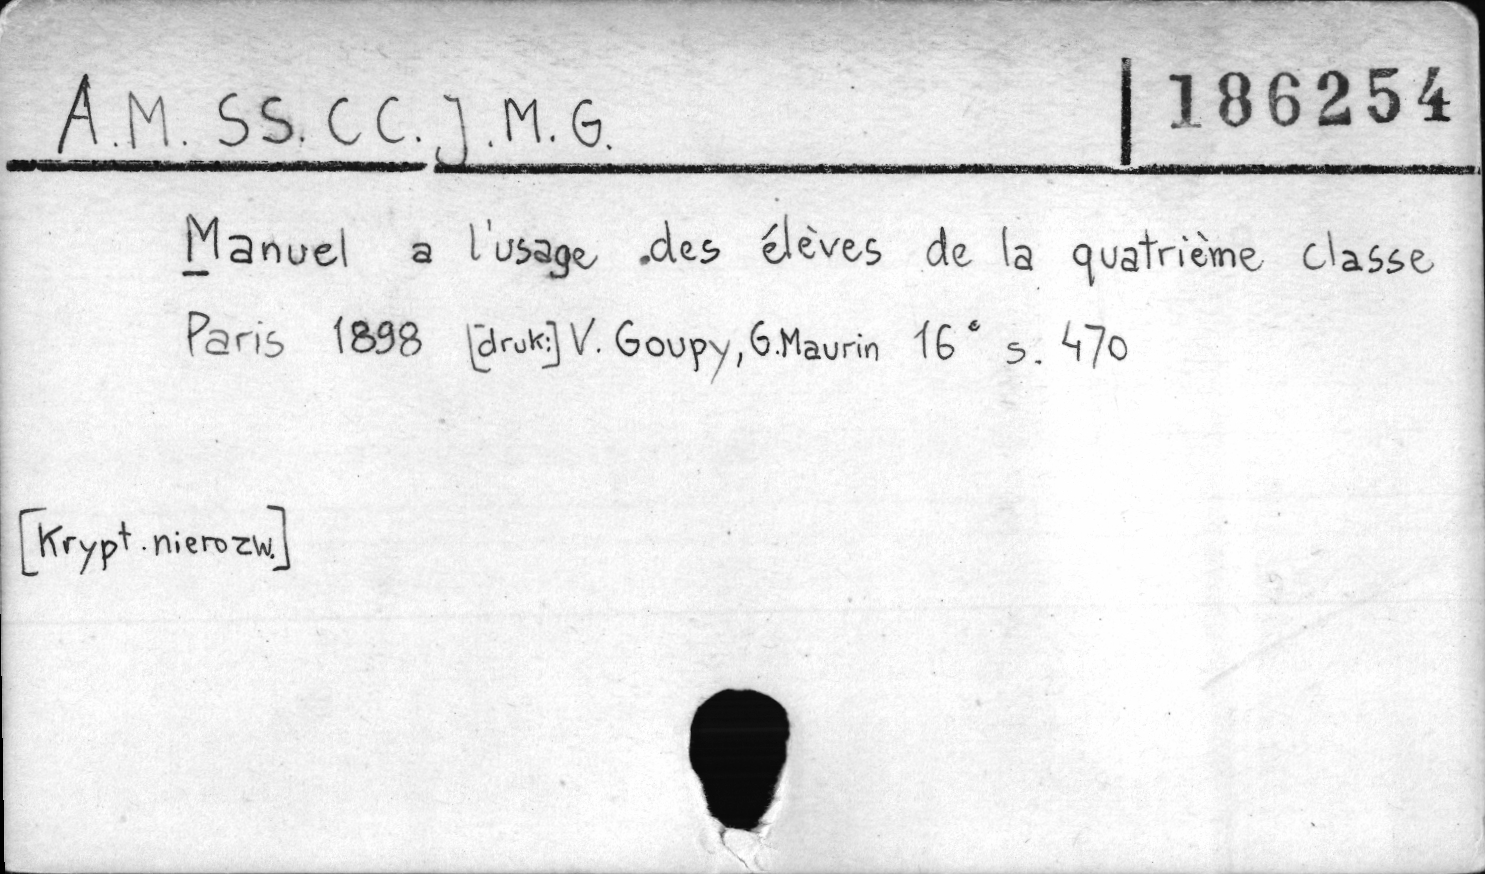 A.M. SS. C C. J.M.G.
186254
Manuel a l'usage des élèves de la quatrième classe
Paris 1898 [druk:] V. Goupy, G. Maurin 16° s. 470
[Krypt. nierozw.]